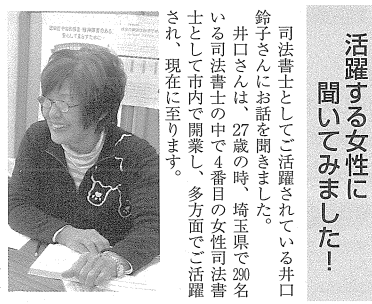 活躍する女性に
聞いてみました！
司法書士としてご活躍されている井口
鈴子さんにお話を聞きました。
井口さんは、27歳の時、埼玉県で290名
いる司法書士の中で４番目の女性司法書
士として市内で開業し、多方面でご活躍
され、現在に至ります。